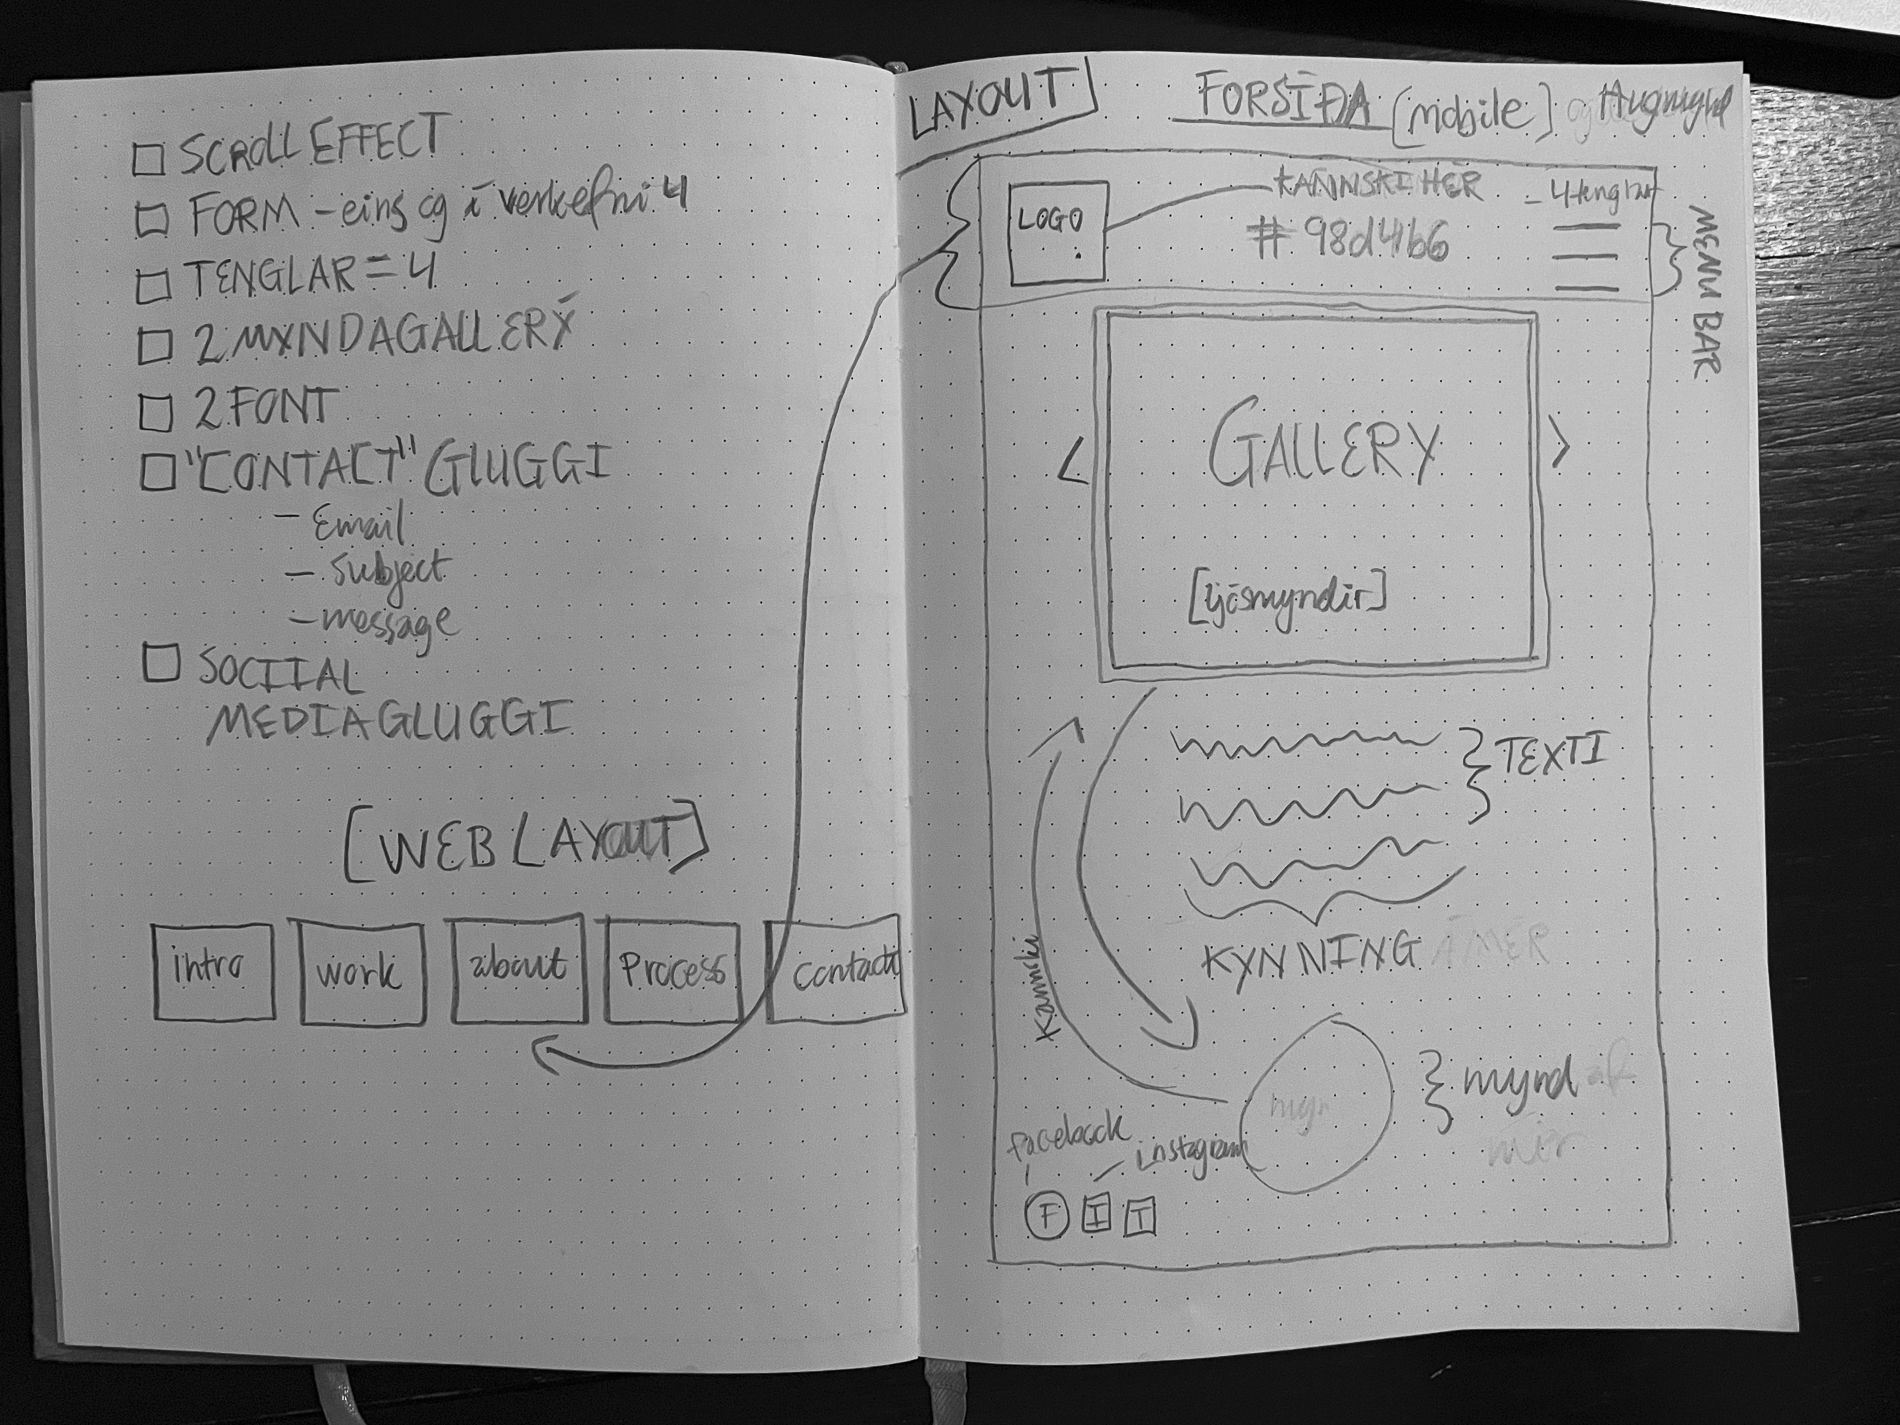 SCROLL EFFECT
FORM - eins og í verkefni 4
TENGLAR = 4
2 MYNDAGALLERÝ
2 FONT
"CONTACT" GLUGGI
- Email
- Subject
- message
SOCIIAL
MEDIAGLUGGI
[WEB LAYOUT]
intro
work
about
Process
contact
LAYOUT]
FORSÍÐA [mobile] Hugmynd
LOGO
KANNSKI HÉR
- 4 tenglar
# 98d4b6
MENU BAR
<
GALLERY
>
[ljósmyndir]
TEXTI
KYNNING Á MÉR
Kannski
myn
mynd af
mér
facebook
instagram
F
I
T